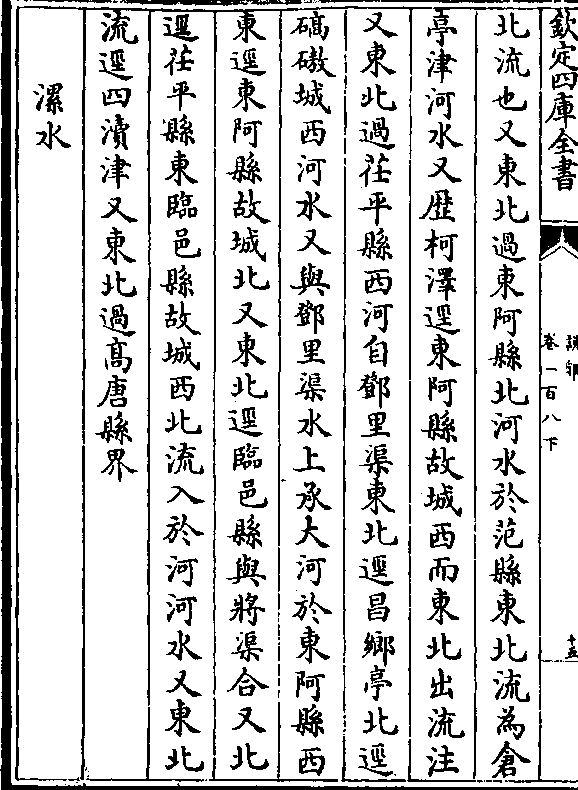 欽定四庫全書
卷一百八下
十五
北流也又東北過東阿縣北河水於范縣東北流為倉
亭津河水又歴柯澤逕東阿縣故城西而東北出流注
又東北過茌平縣西河自鄧里渠東北逕昌鄉亭北逕
碻磝城西河水又與鄧里渠水上承大河於東阿縣西
東逕東阿縣故城北又東北逕臨邑縣與將渠合又北
逕茌平縣東臨邑縣故城西北流入於河河水又東北
流逕四瀆津又東北過高唐縣界
漯水